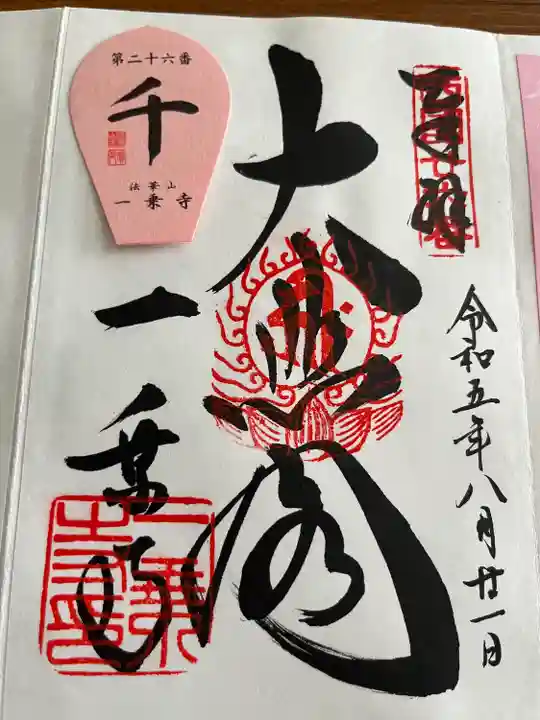 奉拝
西国廿六番
令和五年八月廿一日
大悲閣
一乗寺
第二十六番
千
法華山
一乗寺